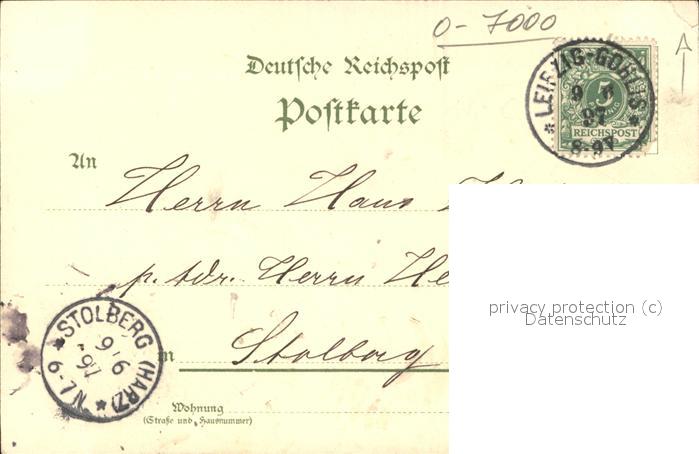 0-7000
A
Deutsche Reichspost
Postkarte
LEIPZIG-GOHLIS
9 6
97
8-9V
5
REICHSPOST
An
Herrn Hans
p. adr. Herrn He
privacy protection (c)
Datenschutz
in Stolberg
STOLBERG (HARZ)
9.6
97
6-7N
Wohnung
(Straße und Hausnummer)